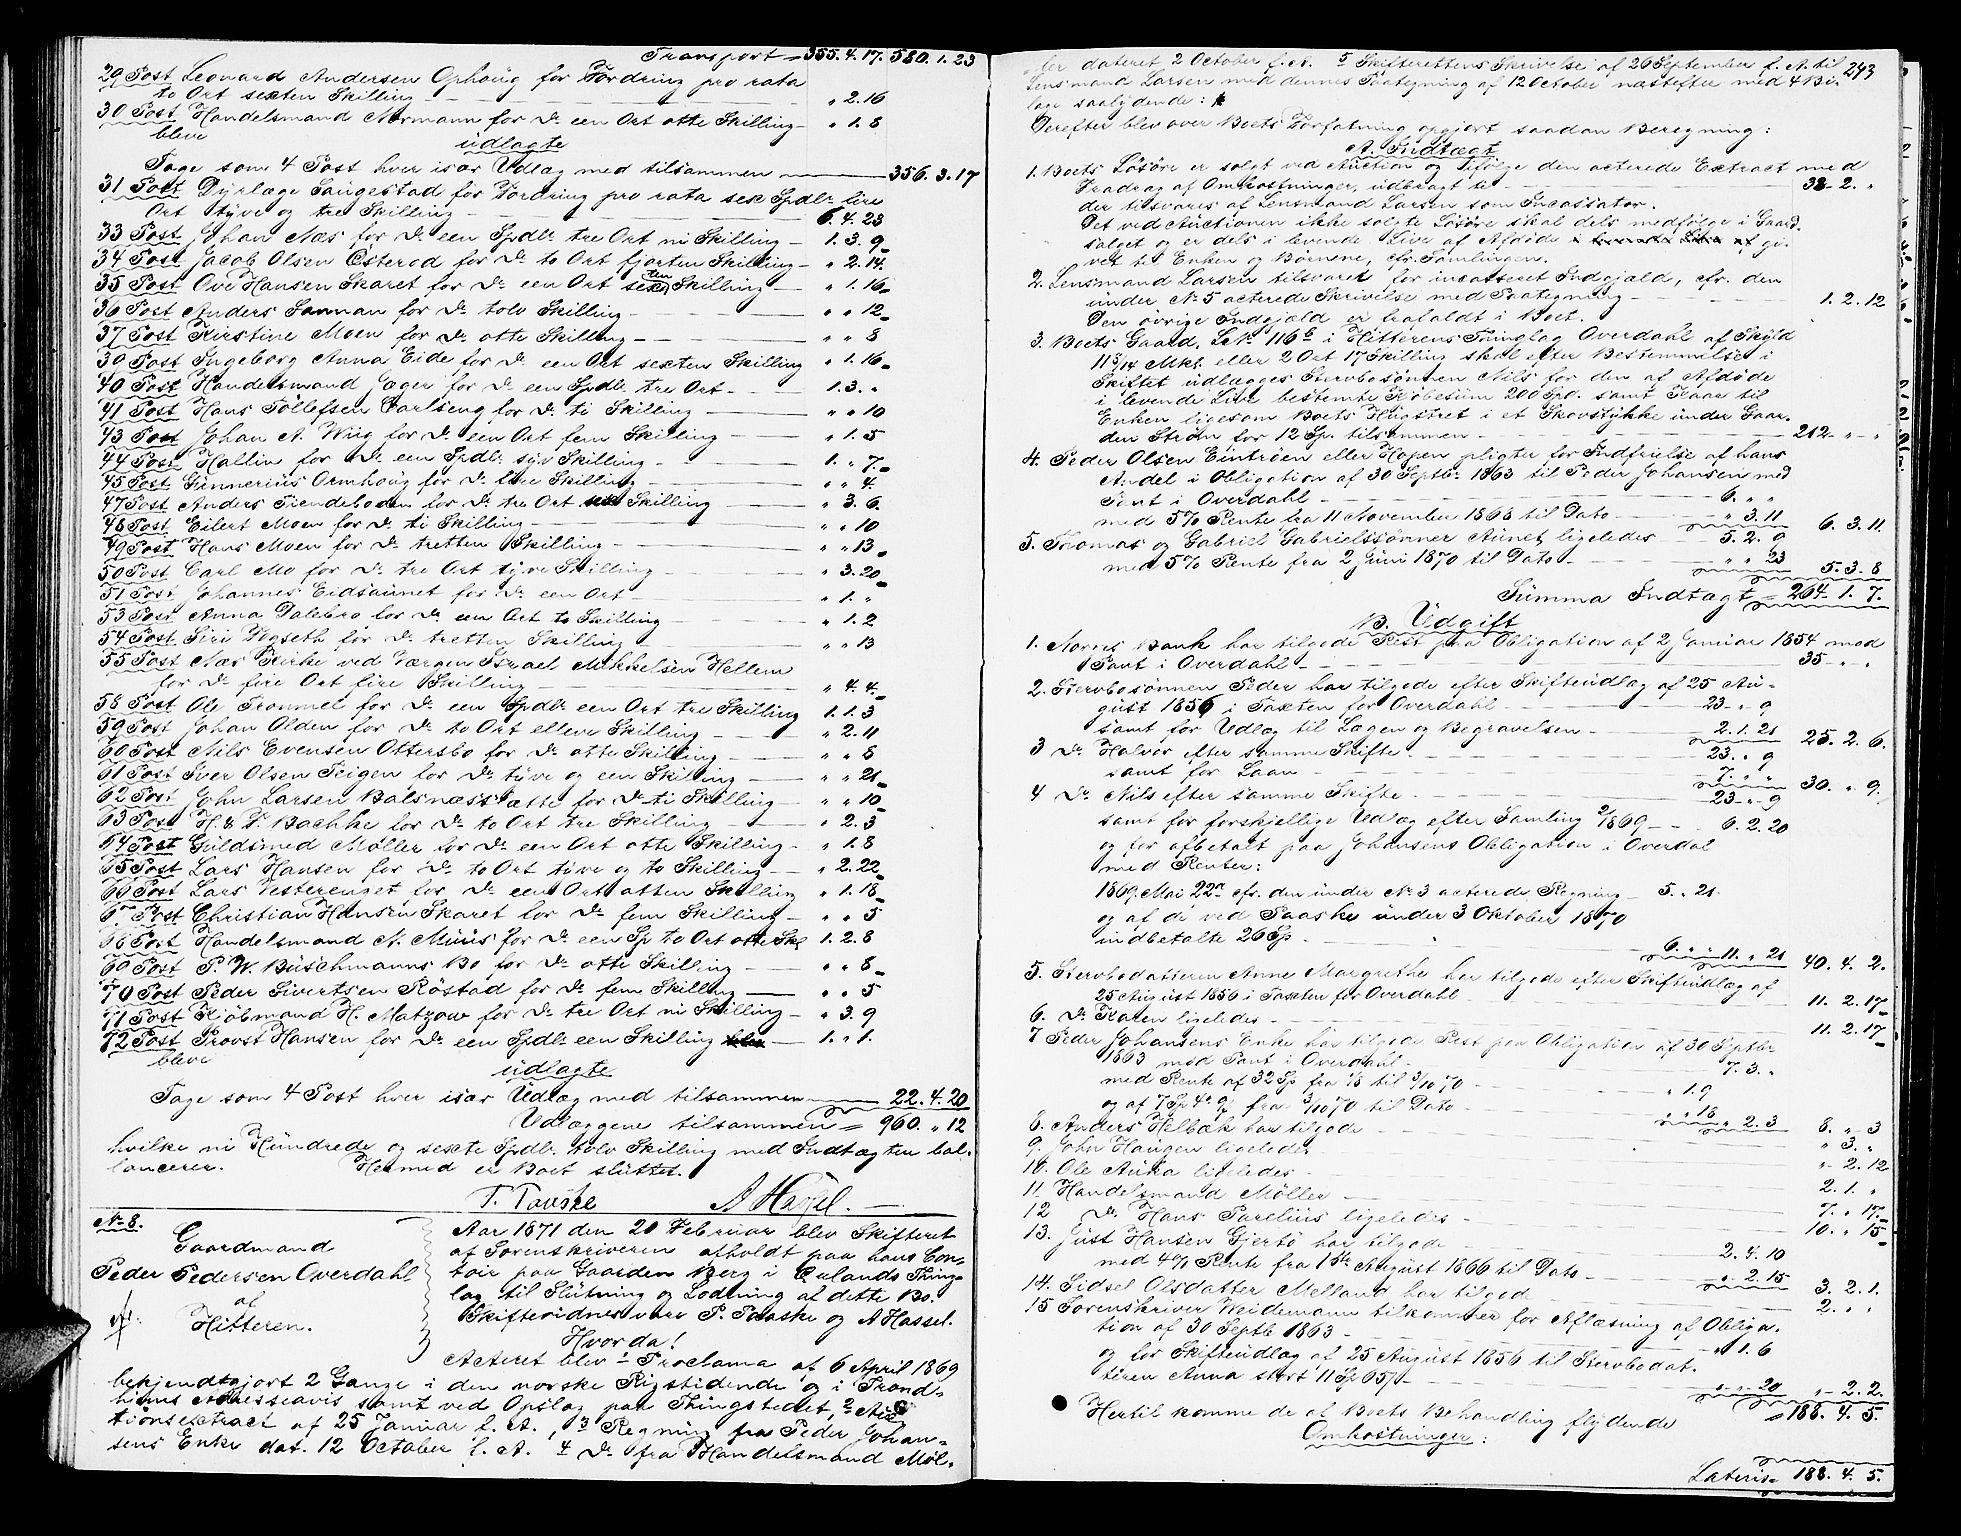 Transport = 355. 4. 17. 580. 1. 23
29 Post Leonard Andersen Ophoug for Fordring pro rata
to Ort sexten Skilling — " 2. 16
30 Post Handelsmand Normann for Do een Ort otte Skilling — " 1. 8
bleve
udlagte
Tage som 4 Post hver især Udlæg med tilsammen — 356. 3. 17
31 Post Dyrlæge Saugestad for Fordring pro rata sex Spdlr fire
Ort tyve og tre Skilling — 6. 4. 23
33 Post Johan Næs for Do een Spdlr tre Ort ni Skilling — 1. 3. 9
34 Post Jacob Olsen Østerød for Do to Ort fjorten Skilling — " 2. 14
35 Post Ove Hansen Skaret for Do een Ort sexten Skilling — " 1. 16
36 Post Anders Sanman for Do tolv Skilling — " " 12
37 Post Kirstine Moen for Do otte Skilling — " " 8
39 Post Ingeborg Anna Eide for Do een Ort sexten Skilling " 1. 16
40 Post Handelsmand Jæger for Do een Spdlr tre Ort — 1. 3. "
41 Post Hans Tollefsen Carlseng for Do ti Skilling — " " 10
43 Post Johan A. Wiig for Do een Ort fem Skilling — " 1. 5
44 Post Hallin for Do een Spdlr syv Skilling — 1. " 7
45 Post Gunnerius Ormhoug for Do fire Skilling — " " 4
47 Post Anders Tiendeboden for Do tre Ort sex Skilling — " 3. 6
48 Post Eilert Moen for Do ti Skilling — " " 10
49 Post Hans Moen for Do tretten Skilling — " " 13
50 Post Carl Mo for Do tre Ort tyve Skilling — " 3. 20
51 Post Johannes Eidsaunet for Do een Ort — " 1. "
53 Post Anna Dalebro for Do een Ort to Skilling — " 1. 2
54 Post Siri Vogseth for Do tretten Skilling — " " 13
55 Post Næs Kirke ved Værgen Israel Mikkelsen Hellem
for Do fire Ort fire Skilling — " 4. 4
58 Post Ole Trommel for Do een Spdlr een Ort tre Skilling 1. 1. 3
59 Post Johan Olden for Do to Ort elleve Skilling — " 2. 11
60 Post Nils Evensen Ottersbo for Do otte Skilling — " " 8
61 Post Iver Olsen Teigen for Do tyve og een Skilling — " " 21
62 Post John Larsen Balsnæssætte for Do ti Skilling — " " 10
63 Post H. & F. Bachke for Do to Ort tre Skilling — " 2. 3
64 Post Guldsmed Møller for Do een Ort otte Skilling — " 1. 8
65 Post Lars Hansen for Do to Ort tyve og to Skilling — " 2. 22
66 Post Lars Vesterenget for Do een Ort atten Skilling " 1. 18
67 Post Christian Hansen Skaret for Do fem Skilling — " " 5
68 Post Handelsmand N. Muus for Do een Sp to Ort otte Sk 1. 2. 8
69 Post P. W. Buschmanns Bo for Do otte Skilling — " " 8
70 Post Peder Sivertsen Røstad for Do fem Skilling — " " 5
71 Post Kjøbmand H. Matzow for Do tre Ort ni Skilling — " 3. 9
72 Post Provst Hansen for Do een Spdlr een Skilling — 1. " 1.
bleve
udlagte
Tage som 4 Post hver især Udlæg med tilsammen — 22. 4. 20
Udlæggene tilsammen = 960. " 12
hvilke ni Hundrede og sexti Spdlr tolv Skilling med Indtægten bal-
lancerer. Hermed er Boet sluttet.
P. Paaske A Hassel.
No 8.
Gaardmand
Peder Pedersen Overdahl
af
Hitteren.
Aar 1871 den 20 Februar blev Skifteret
af Sorenskriveren afholdt paa hans Con-
toir paa Gaarden Berg i Ørlands Thing-
lag til Slutning og Lodning af dette Bo.
Skiftevidner vare P. Paaske og A Hassel.
Hvorda!
Acteret blev 1 Proclama af 6 April 1869
bekjendtgjort 2 Gange i den norske Rigstidende og i Trond-
hjems Adresseavis samt ved Opslag paa Thingstedet, 2 Auc
tionsextract af 25 Januar f. A., 3 Regning fra Peder Johan-
sens Enke dat. 12 October f. A. 4 Do fra Handelsmand Møl-
ler dateret 2 October f. A. 5 Skifterettens Skrivelse af 26 September f. A. til 243
Lensmand Larsen med dennes Paategning af 12 October næstefter med 4 Bi-
lage saalydende:
Derefter blev over Boets Forfatning opgjort saadan Beregning:
A. Indtægt
1. Boets Løsøre er solgt ved Auction og ifølge den acterede Extract med
Fradrag af Omkostninger, udbragt til — 38. 2. "
der tilsvares af Lensmand Larsen som Incassator.
Det ved Auctionen ikke solgte Løsøre skal dels medfølge i Gaard-
salget og er dels i levende Live af Afdøde gi-
vet til Enken og Børnene, cfr. Samlingen.
2. Lensmand Larsen tilsvarer for incasseret Indgjæld, cfr. den
under No 5 acterede Skrivelse med Paategning — 1. 2. 12
Den øvrige Indgjæld er frafaldt i Boet.
3. Boets Gaard, L No 116b i Hitterens Thinglag Overdahl af Skyld
11 3/14 Mkl. eller 2 Ort 17 Skilling skal efter Bestemmelse i
Skiftet udlægges Stervbosønnen Nils for den af Afdøde
i levende Live bestemte Købesum 200 Spd. samt Kaar til
Enken ligesom Boets Husstret i et Skovstykke under Gaar-
den Strøm for 12 Sp. tilsammen — 212 " "
4. Peder Olsen Eintrøen eller Hopen pligter for Indfrielse af hans
Andel i Obligation af 30 Septbr 1863 til Peder Johansen med
Pant i Overdahl — 6. " "
med 5% Rente fra 11 November 1868 til Dato — " 3. 11 6. 3. 11.
5. Thomas og Gabriel Gabrielssønner Aunet ligeledes — 5. 2. 9
med 5% Rente fra 2 Juni 1870 til Dato — " " 23 5. 3. 8
Summa Indtægt = 264. 1. 7.
B. Udgift
1. Norges Bank har tilgode Rest paa Obligation af 2 Januar 1854 med
Pant i Overdahl — 35 " "
2. Stervbosønnen Peder har tilgode efter Skifteudlæg af 25 Au-
gust 1856 i Taxten for Overdahl — 23. " 9
samt for Udlæg til Lægen og Begravelsen — 2. 1. 21 25. 2. 6.
3 Do Halvor efter samme Skifte — 23. " 9
samt for Laan — 7. " " 30. " 9.
4 Do Nils efter samme Skifte — 23 " 9
samt for forskjellige Udlæg efter Samling 2/1869 — 6. 2. 20
og for afbetalt paa Johansens Obligation i Overdal
med Renter:
1869. Mai 22n cfr. den under No 3 acterede Regning — 5. " 21.
og af de ved Paaske under 3 Oktober 1870
indbetalte 26 Sp — 6. " " 11. " 21 40. 4. 2.
5. Stervbodatteren Anne Margrethe har tilgode efter Skifteudlæg af
25 August 1856 i Taxten for Overdahl — 11. 2. 17
6. Do Karen ligeledes — 11. 2. 17
7 Peder Johansens Enke har tilgode Rest paa Obligation af 30 Septbr
1863 med Pant i Overdahl — 7. 3. "
med Rente af 32 Sp fra 1/8 til 3/10 70 — " 1. 9
og af 7 Sp fra 3/10 70 til Dato — " " 18 " 2. 3 8. " 3
8. Anders Helbak har tilgode — " 3. "
9. John Haugen ligeledes — " 2. 12
10. Ole Aune ligeledes — 2. 1. "
11. Handelsmand Møller — 7. " 17
12 Do Hans Parelius ligeledes — 10. " 15
13. Just Hansen Gjertø har tilgode — 2. 4. 10
med 4% Rente fra 1ste August 1866 til Dato — " 2. 15 3. 2. 1.
14. Sidsel Olsdatter Melland har tilgod — 2. " "
15 Sorenskriver Weidemann tilkommer for Aflæsning af Obliga-
tion af 30 Septb 1863 — " 1. 6
og for Skifteudlæg af 25 August 1856 til Stervbodat-
teren Anna stort 11 Sp — " " 20 " 2. 2.
= 188. 4. 5.
Hertil komme de af Boets Behandling flydende
Omkostninger:
Lateris = 188. 4. 5.